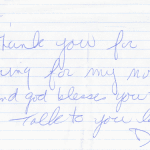 Thank you for
ing for my
and god blesses you
Talk to you